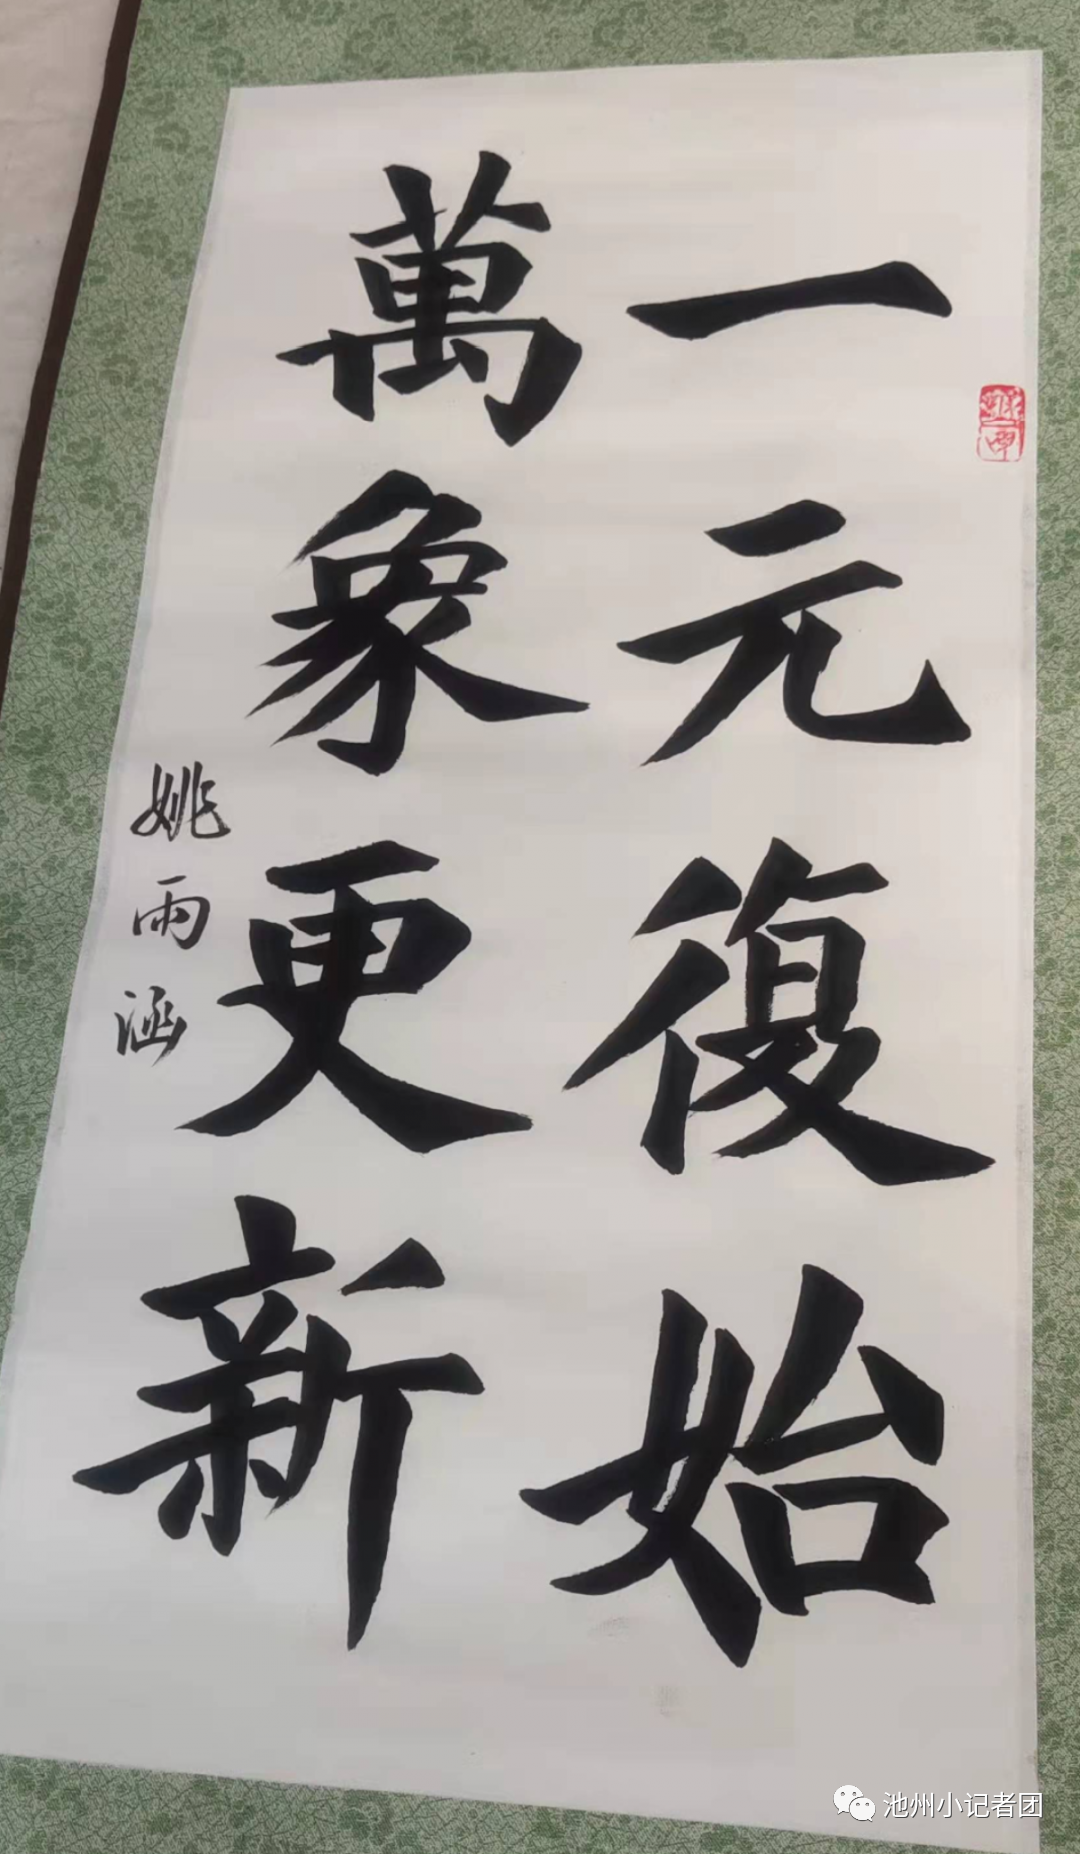 一元復始
萬象更新
姚雨涵
池州小记者团